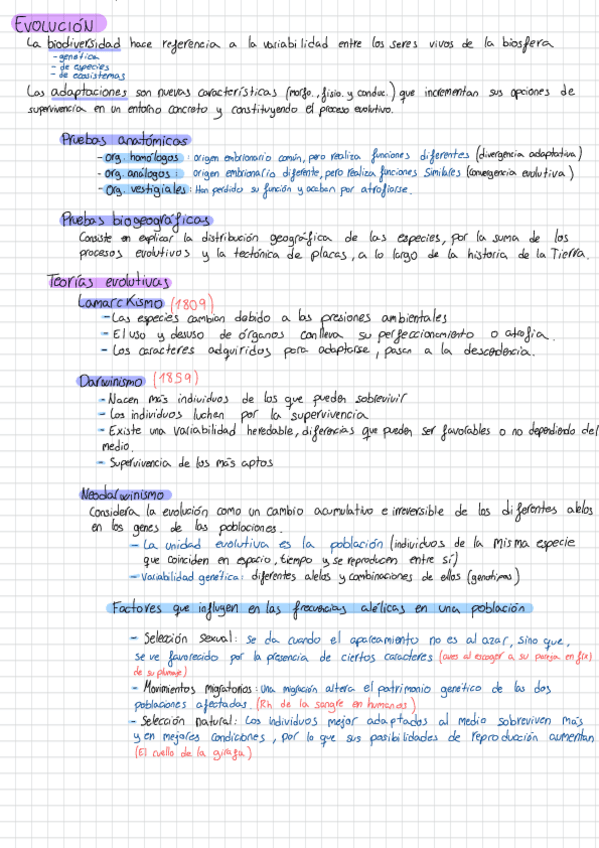 EVOLUCIÓN
La biodiversidad hace referencia a la variabilidad entre los seres vivos de la biosfera
- genética
- de especies
- de ecosistemas
Las adaptaciones son nuevas características (morfo., fisio. y conduc.) que incrementan sus opciones de
supervivencia en un entorno concreto y constituyendo el proceso evolutivo.
Pruebas anatómicas
- Org. homólogos: origen embrionario común, pero realiza funciones diferentes (divergencia adaptativa)
- Org. análogos: origen embrionario diferente, pero realiza funciones similares (convergencia evolutiva)
- Org. vestigiales: Han perdido su función y acaban por atrofiarse.
Pruebas biogeográficas
Consiste en explicar la distribución geográfica de las especies, por la suma de los
procesos evolutivos y la tectónica de placas, a lo largo de la historia de la Tierra.
Teorías evolutivas
Lamarckismo (1809)
- Las especies cambian debido a las presiones ambientales
- El uso y desuso de órganos conlleva su perfeccionamiento o atrofia.
- Los caracteres adquiridos para adaptarse, pasan a la descendencia.
Darwinismo (1859)
- Nacen más individuos de los que pueden sobrevivir
- Los individuos luchan por la supervivencia
- Existe una variabilidad heredable, diferencias que pueden ser favorables o no dependiendo del
medio.
- Supervivencia de los más aptos
Neodarwinismo
Considera la evolución como un cambio acumulativo e irreversible de los diferentes alelos
en los genes de las poblaciones.
- La unidad evolutiva es la población (individuos de la misma especie
que coinciden en espacio, tiempo y se reproducen entre sí)
- Variabilidad genética: diferentes alelos y combinaciones de ellos (genotipos)
Factores que influyen en las frecuencias alélicas en una población
- Selección sexual: se da cuando el apareamiento no es al azar, sino que,
se ve favorecido por la presencia de ciertos caracteres (aves al escoger a su pareja en f(x)
de su plumaje)
- Movimientos migratorios: una migración altera el patrimonio genético de las dos
poblaciones afectadas. (Rh de la sangre en humanos)
- Selección natural: Los individuos mejor adaptados al medio sobreviven más
y en mejores condiciones, por lo que sus posibilidades de reproducción aumentan.
(El cuello de la girafa)